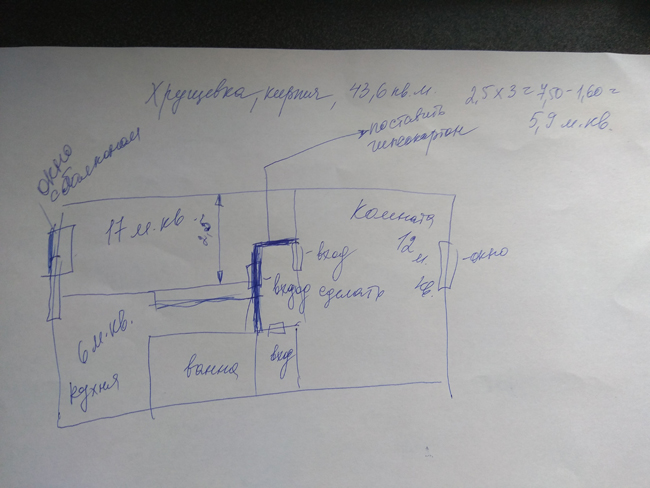 Хрущевка, кирпич, 43,6 кв.м.
2,5 х 3 = 7,50 - 1,60 =
5,9 м.кв.
поставить
гипсокартон
окно
с балконом
17 м.кв.
Комната
12
м
кв.
окно
вход
вход сделать
6 м.кв.
кухня
ванна
вход